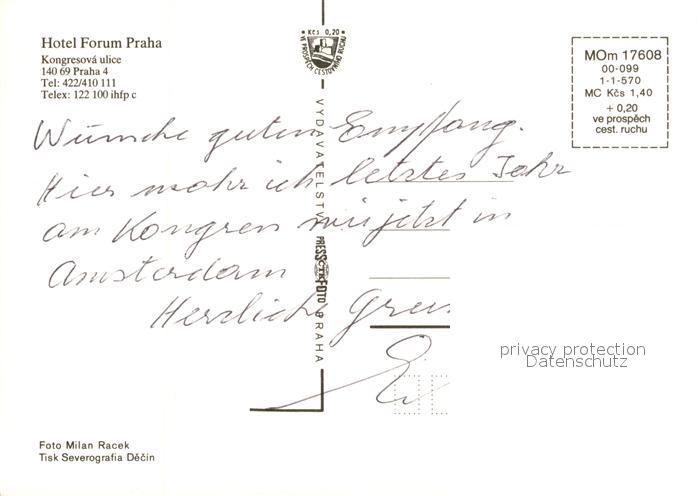 Hotel Forum Praha
Kongresová ulice
140 69 Praha 4
Tel: 422/410 111
Telex: 122 100 ihfp c
Kčs 0,20
VE PROSPĚCH CESTOVNÍHO RUCHU
MOm 17608
00-099
1-1-570
MC Kčs 1,40
+ 0,20
ve prospěch
cest. ruchu
Wünsche guten Empfang.
Hier wahr ich letztes Jahr
am Kongress wie jetzt in
Amsterdam
Herzliche
VYDAVATELSTVÍ PRESSFOTO PRAHA
ČTK
privacy protection
Datenschutz
Foto Milan Racek
Tisk Severografia Děčín